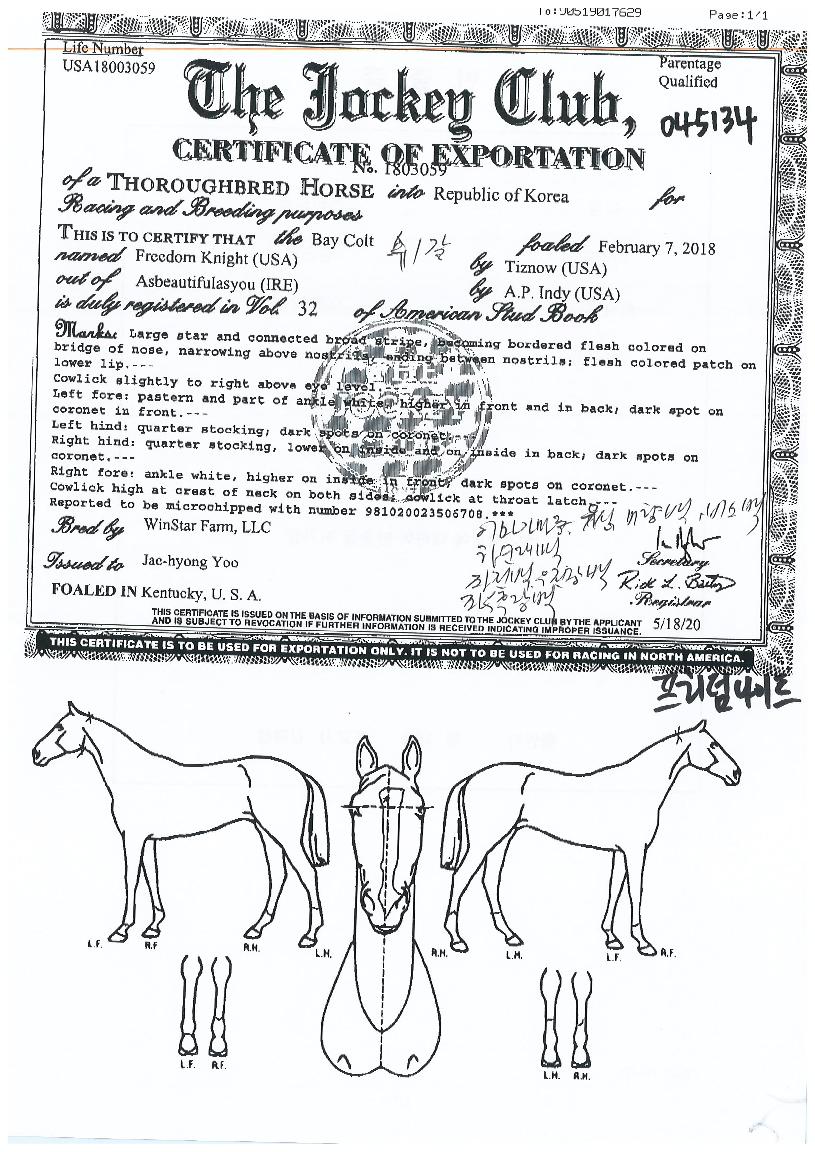 To:90519017629 Page:1/1
Life Number
USA18003059
Parentage
Qualified
The Jockey Club,
045134
CERTIFICATE OF EXPORTATION
No. 1803059
of a THOROUGHBRED HORSE into Republic of Korea for
Racing and Breeding purposes
THIS IS TO CERTIFY THAT the Bay Colt foaled February 7, 2018
named Freedom Knight (USA) by Tiznow (USA)
out of Asbeautifulasyou (IRE) by A.P. Indy (USA)
is duly registered in Vol. 32 of American Stud Book
Marks: Large star and connected broad stripe, becoming bordered flesh colored on
bridge of nose, narrowing above nostrils, ending between nostrils; flesh colored patch on
lower lip.---
Cowlick slightly to right above eye level.---
Left fore: pastern and part of ankle white, higher in front and in back; dark spot on
coronet in front.---
Left hind: quarter stocking; dark spots on coronet.---
Right hind: quarter stocking, lower on inside and on inside in back; dark spots on
coronet.---
Right fore: ankle white, higher on inside in front; dark spots on coronet.---
Cowlick high at crest of neck on both sides; cowlick at throat latch.---
Reported to be microchipped with number 981020023506708.***
Bred by WinStar Farm, LLC
Secretary
Issued to Jac-hyong Yoo
Rick L. Bailey
Registrar
FOALED IN Kentucky, U. S. A.
THIS CERTIFICATE IS ISSUED ON THE BASIS OF INFORMATION SUBMITTED TO THE JOCKEY CLUB BY THE APPLICANT
AND IS SUBJECT TO REVOCATION IF FURTHER INFORMATION IS RECEIVED INDICATING IMPROPER ISSUANCE. 5/18/20
THIS CERTIFICATE IS TO BE USED FOR EXPORTATION ONLY. IT IS NOT TO BE USED FOR RACING IN NORTH AMERICA.
프리덤나이트
L.F. R.F. R.H. L.H. R.H. L.H. L.F. R.F.
L.F. R.F. L.H. R.H.